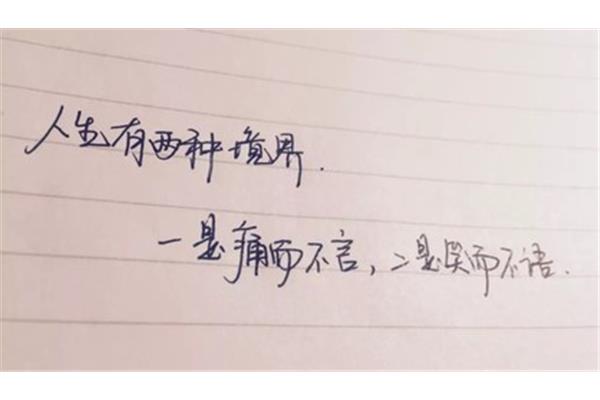 人生有两种境界.
一是痛而不言,二是笑而不语.